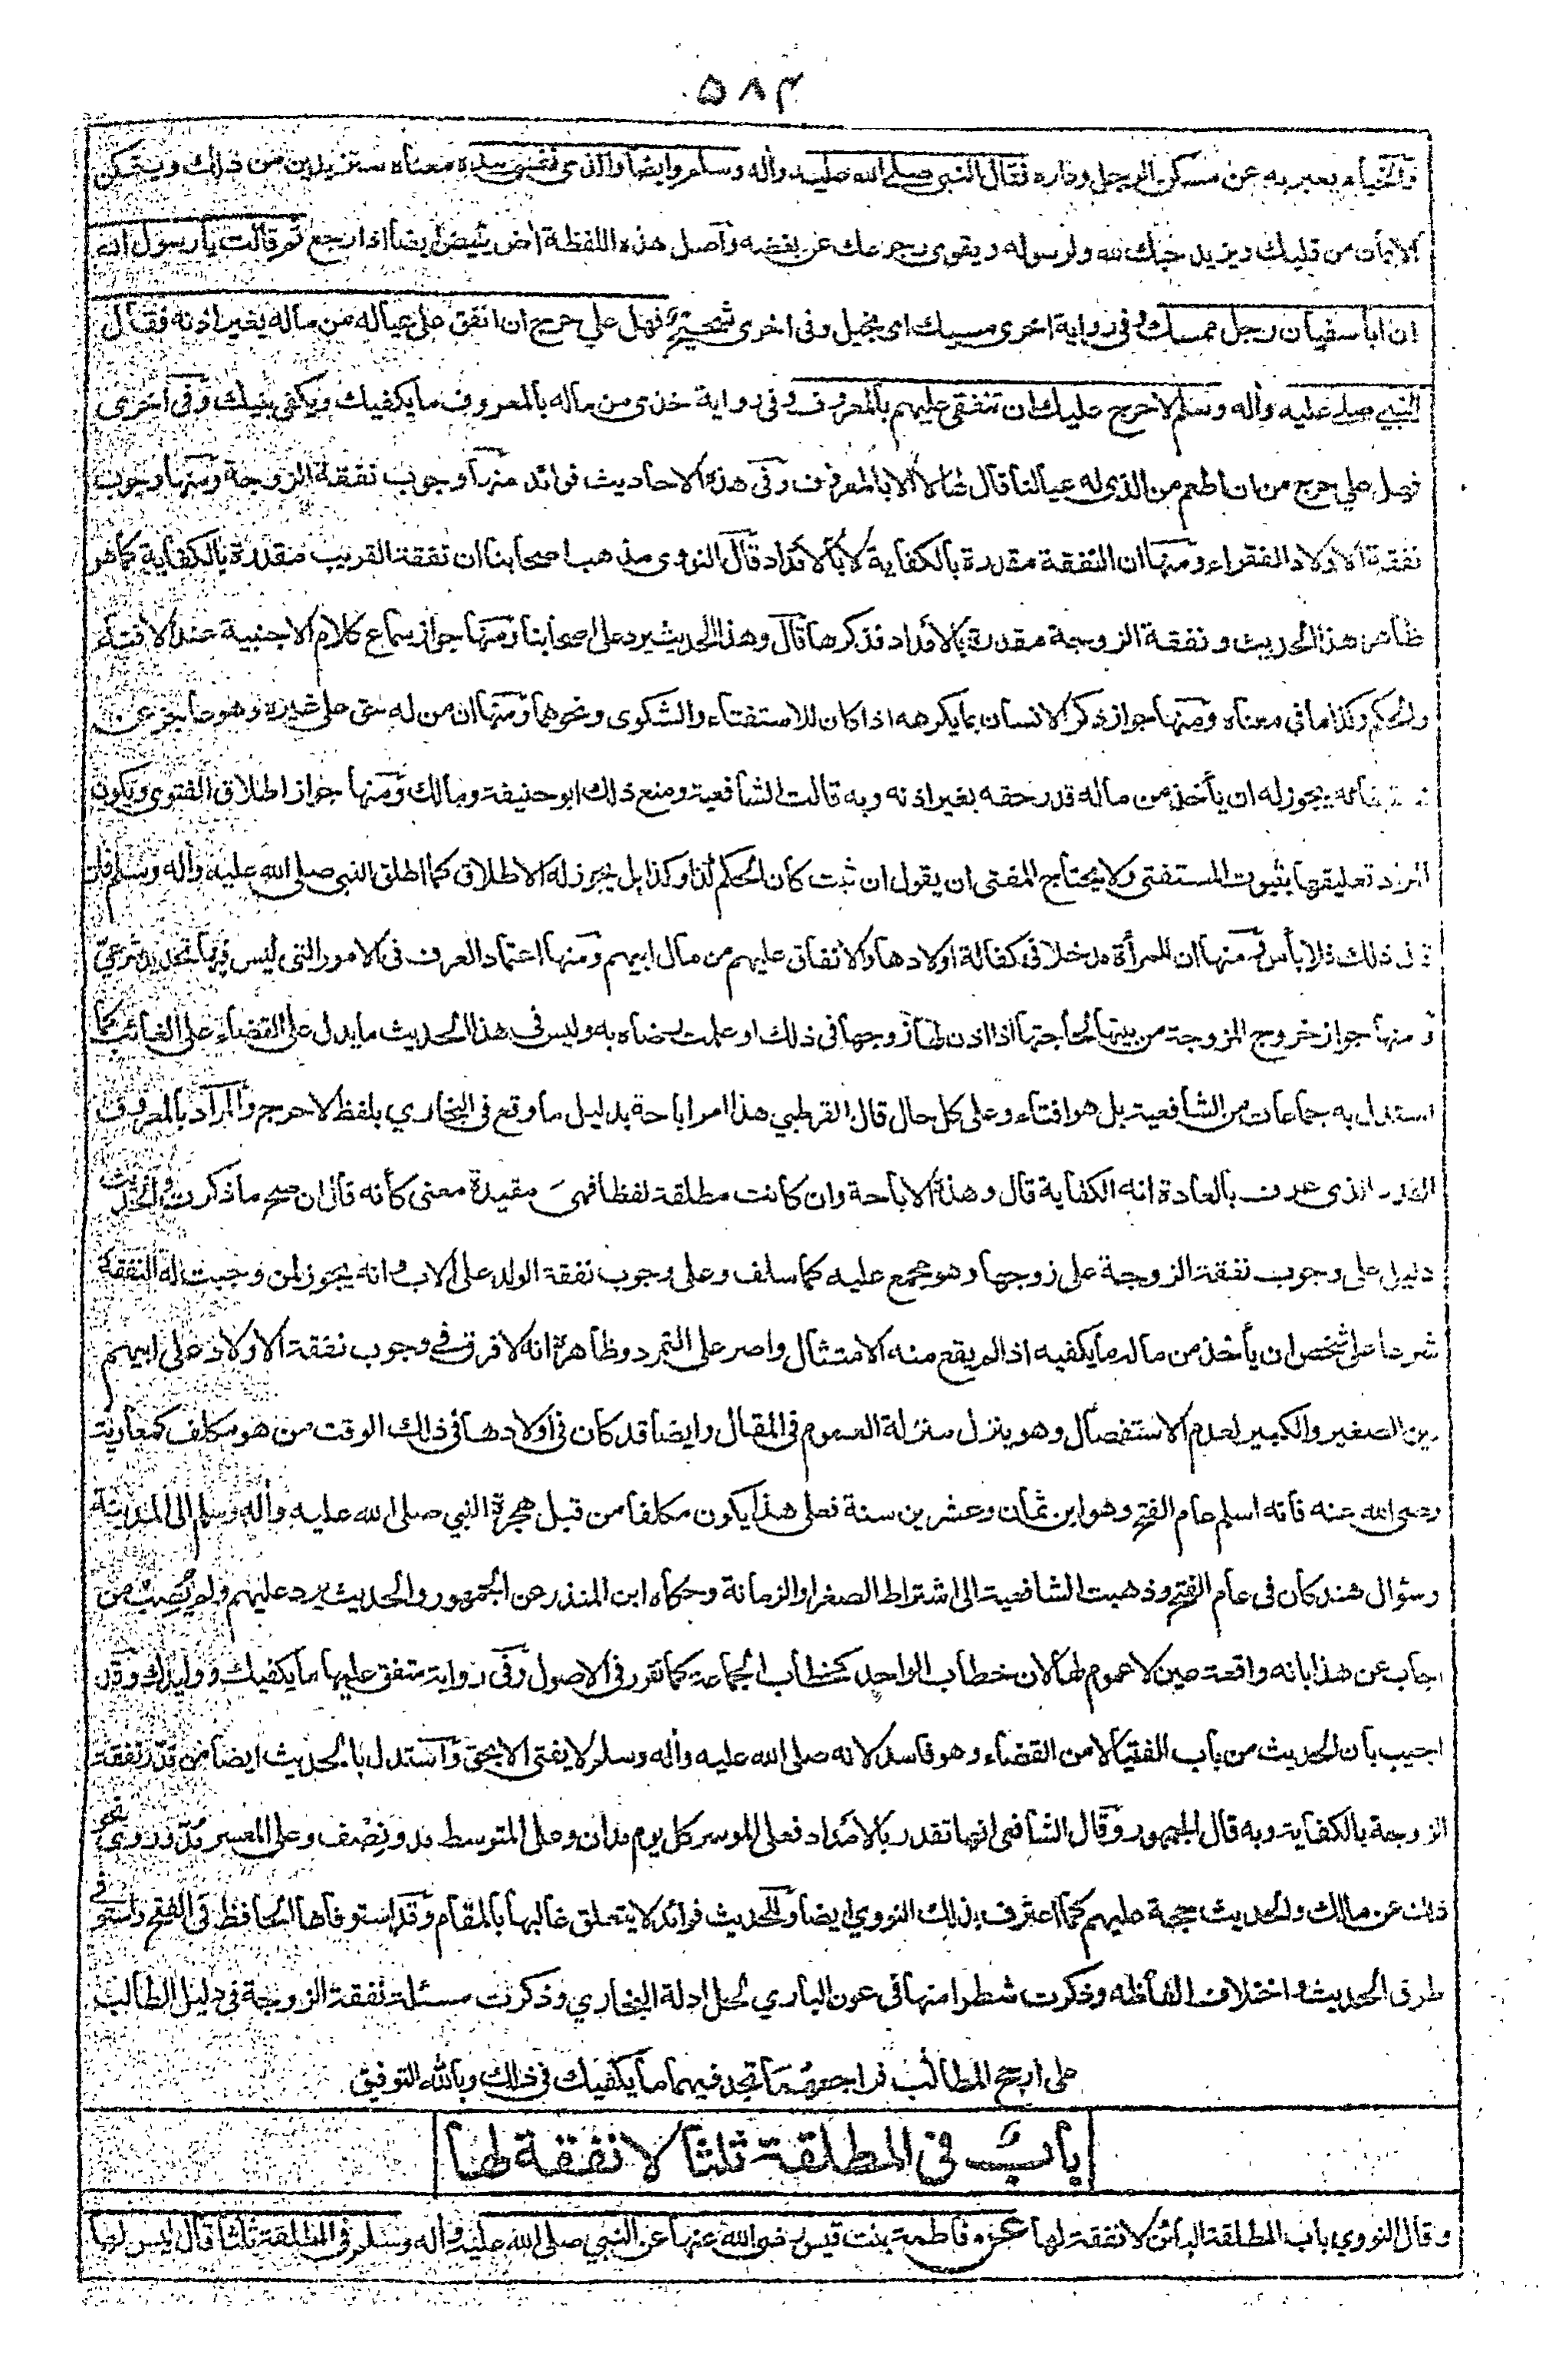 ٥٨٣
والخباء يعبر به عن مسكن الرجل وداره فقال النبي صلى الله عليه واله وسلم وايضا والذي نفسي بيده معناه ستزيدين من ذلك ويتمكن
الايمان من قلبك ويزيد حبك لله ولرسوله ويقوى رجوعك عن بغضه واصل هذه اللفظة اض يئيض ايضا اذا رجع ثم قالت يا رسول الله
ان ابا سفيان رجل ممسك وفي رواية اخرى مسيك اي بخيل وفي اخرى شحيح فهل علي حرج ان انفق على عياله من ماله بغير اذنه فقال
النبي صلى عليه واله وسلم لا حرج عليك ان تنفقي عليهم بالمعروف وفي رواية خذي من ماله بالمعروف ما يكفيك ويكفي بنيك وفي اخرى
فهل علي حرج من ان اطعم من الذي له عيالنا قال لها لا الا بالمعروف وفي هذه الاحاديث فوائد منها وجوب نفقة الزوجة ومنها وجوب
نفقة الاولاد الفقراء ومنها ان النفقة مقدرة بالكفاية لا بالامداد قال النووي مذهب اصحابنا ان نفقة القريب مقدرة بالكفاية كما هو
ظاهر هذا الحديث ونفقة الزوجة مقدرة بالامداد فذكرها قال وهذا الحديث يرد على اصحابنا ومنها جواز سماع كلام الاجنبية عند الافتاء
والحكم وكذا ما في معناه ومنها جواز ذكر الانسان بما يكرهه اذا كان للاستفتاء والشكوى ونحوهما ومنها ان من له حق على غيره وهو عاجز عن
يجوز له ان يأخذ من ماله قدر حقه بغير اذنه وبه قالت الشافعية ومنع ذلك ابو حنيفة ومالك ومنها جواز اطلاق الفتوى ويكون
المراد تعليقها بثبوت المستفتى ولا يحتاج المفتي ان يقول ان ثبت كان الحكم كذا وكذا بل يجوز له الاطلاق كما اطلق النبي صلى الله عليه واله وسلم فان
قال ذلك فلا بأس ومنها ان للمرأة مدخلا في كفالة اولادها والانفاق عليهم من مال ابيهم ومنها اعتماد العرف في الامور التي ليس فيها تحديد شرعي
ومنها جواز خروج الزوجة من بيتها لحاجتها اذا اذن لها زوجها في ذلك او علمت رضاه به وليس في هذا الحديث ما يدل على القضاء على الغائب كما
استدل به جماعات من الشافعية بل هو افتاء وعلى كل حال قال القرطبي هذا امر اباحة بدليل ما وقع في البخاري بلفظ لا حرج والمراد بالمعروف
القدر الذي عرف بالعادة انه الكفاية قال وهذه الاباحة وان كانت مطلقة لفظا فهي مقيدة معنى كأنه قال ان صح ما ذكرت والحديث
دليل على وجوب نفقة الزوجة على زوجها وهو مجمع عليه كما سلف وعلى وجوب نفقة الولد على الاب وانه يجوز لمن وجبت له النفقة
شرعا على شخص ان يأخذ من ماله ما يكفيه اذا لم يقع منه الامتثال واصر على التمرد وظاهره انه لا فرق في وجوب نفقة الاولاد على ابيهم
بين الصغير والكبير لعدم الاستفصال وهو ينزل منزلة العموم في المقال وايضا قد كان في اولادها في ذلك الوقت من هو مكلف كمعاوية
رضي الله عنه فانه اسلم عام الفتح وهو ابن ثمان وعشرين سنة فعلى هذا يكون مكلفا من قبل هجرة النبي صلى الله عليه واله وسلم الى المدينة
وسؤال هند كان في عام الفتح وذهبت الشافعية الى اشتراط الصغر او الزمانة وحكاه ابن المنذر عن الجمهور والحديث يرد عليهم ولم يُصِبْ من
اجاب عن هذا بانه واقعة عين لا عموم لها لان خطاب الواحد كخطاب الجماعة كما تقرر في الاصول وفي رواية متفق عليها ما يكفيك وولدك وقد
اجيب بان الحديث من باب الفتيا لا من القضاء وهو فاسد لانه صلى الله عليه واله وسلم لا يفتي الا بحق واستدل بالحديث ايضا من قدر نفقة
الزوجة بالكفاية وبه قال الجمهور وقال الشافعي انها تقدر بالامداد فعلى الموسر كل يوم مدان وعلى المتوسط مد ونصف وعلى المعسر مُدّ وروي نحو
ذلك عن مالك والحديث حجة عليهم كما اعترف بذلك النووي ايضا وللحديث فوائد لا يتعلق غالبها بالمقام وقد استوفاها الحافظ في الفتح واستوفى
طرق الحديث واختلاف الفاظه وذكرت شطرا منها في عون الباري لحل ادلة البخاري وذكرت مسئلة نفقة الزوجة في دليل الطالب
على ارجح المطالب فراجعهما تجد فيهما ما يكفيك في ذلك وبالله التوفيق
باب في المطلقة ثلثا لا نفقة لها
وقال النووي باب المطلقة البائن لا نفقة لها عن فاطمة بنت قيس رضي الله عنها عن النبي صلى الله عليه واله وسلم في المطلقة ثلثا قال ليس لها